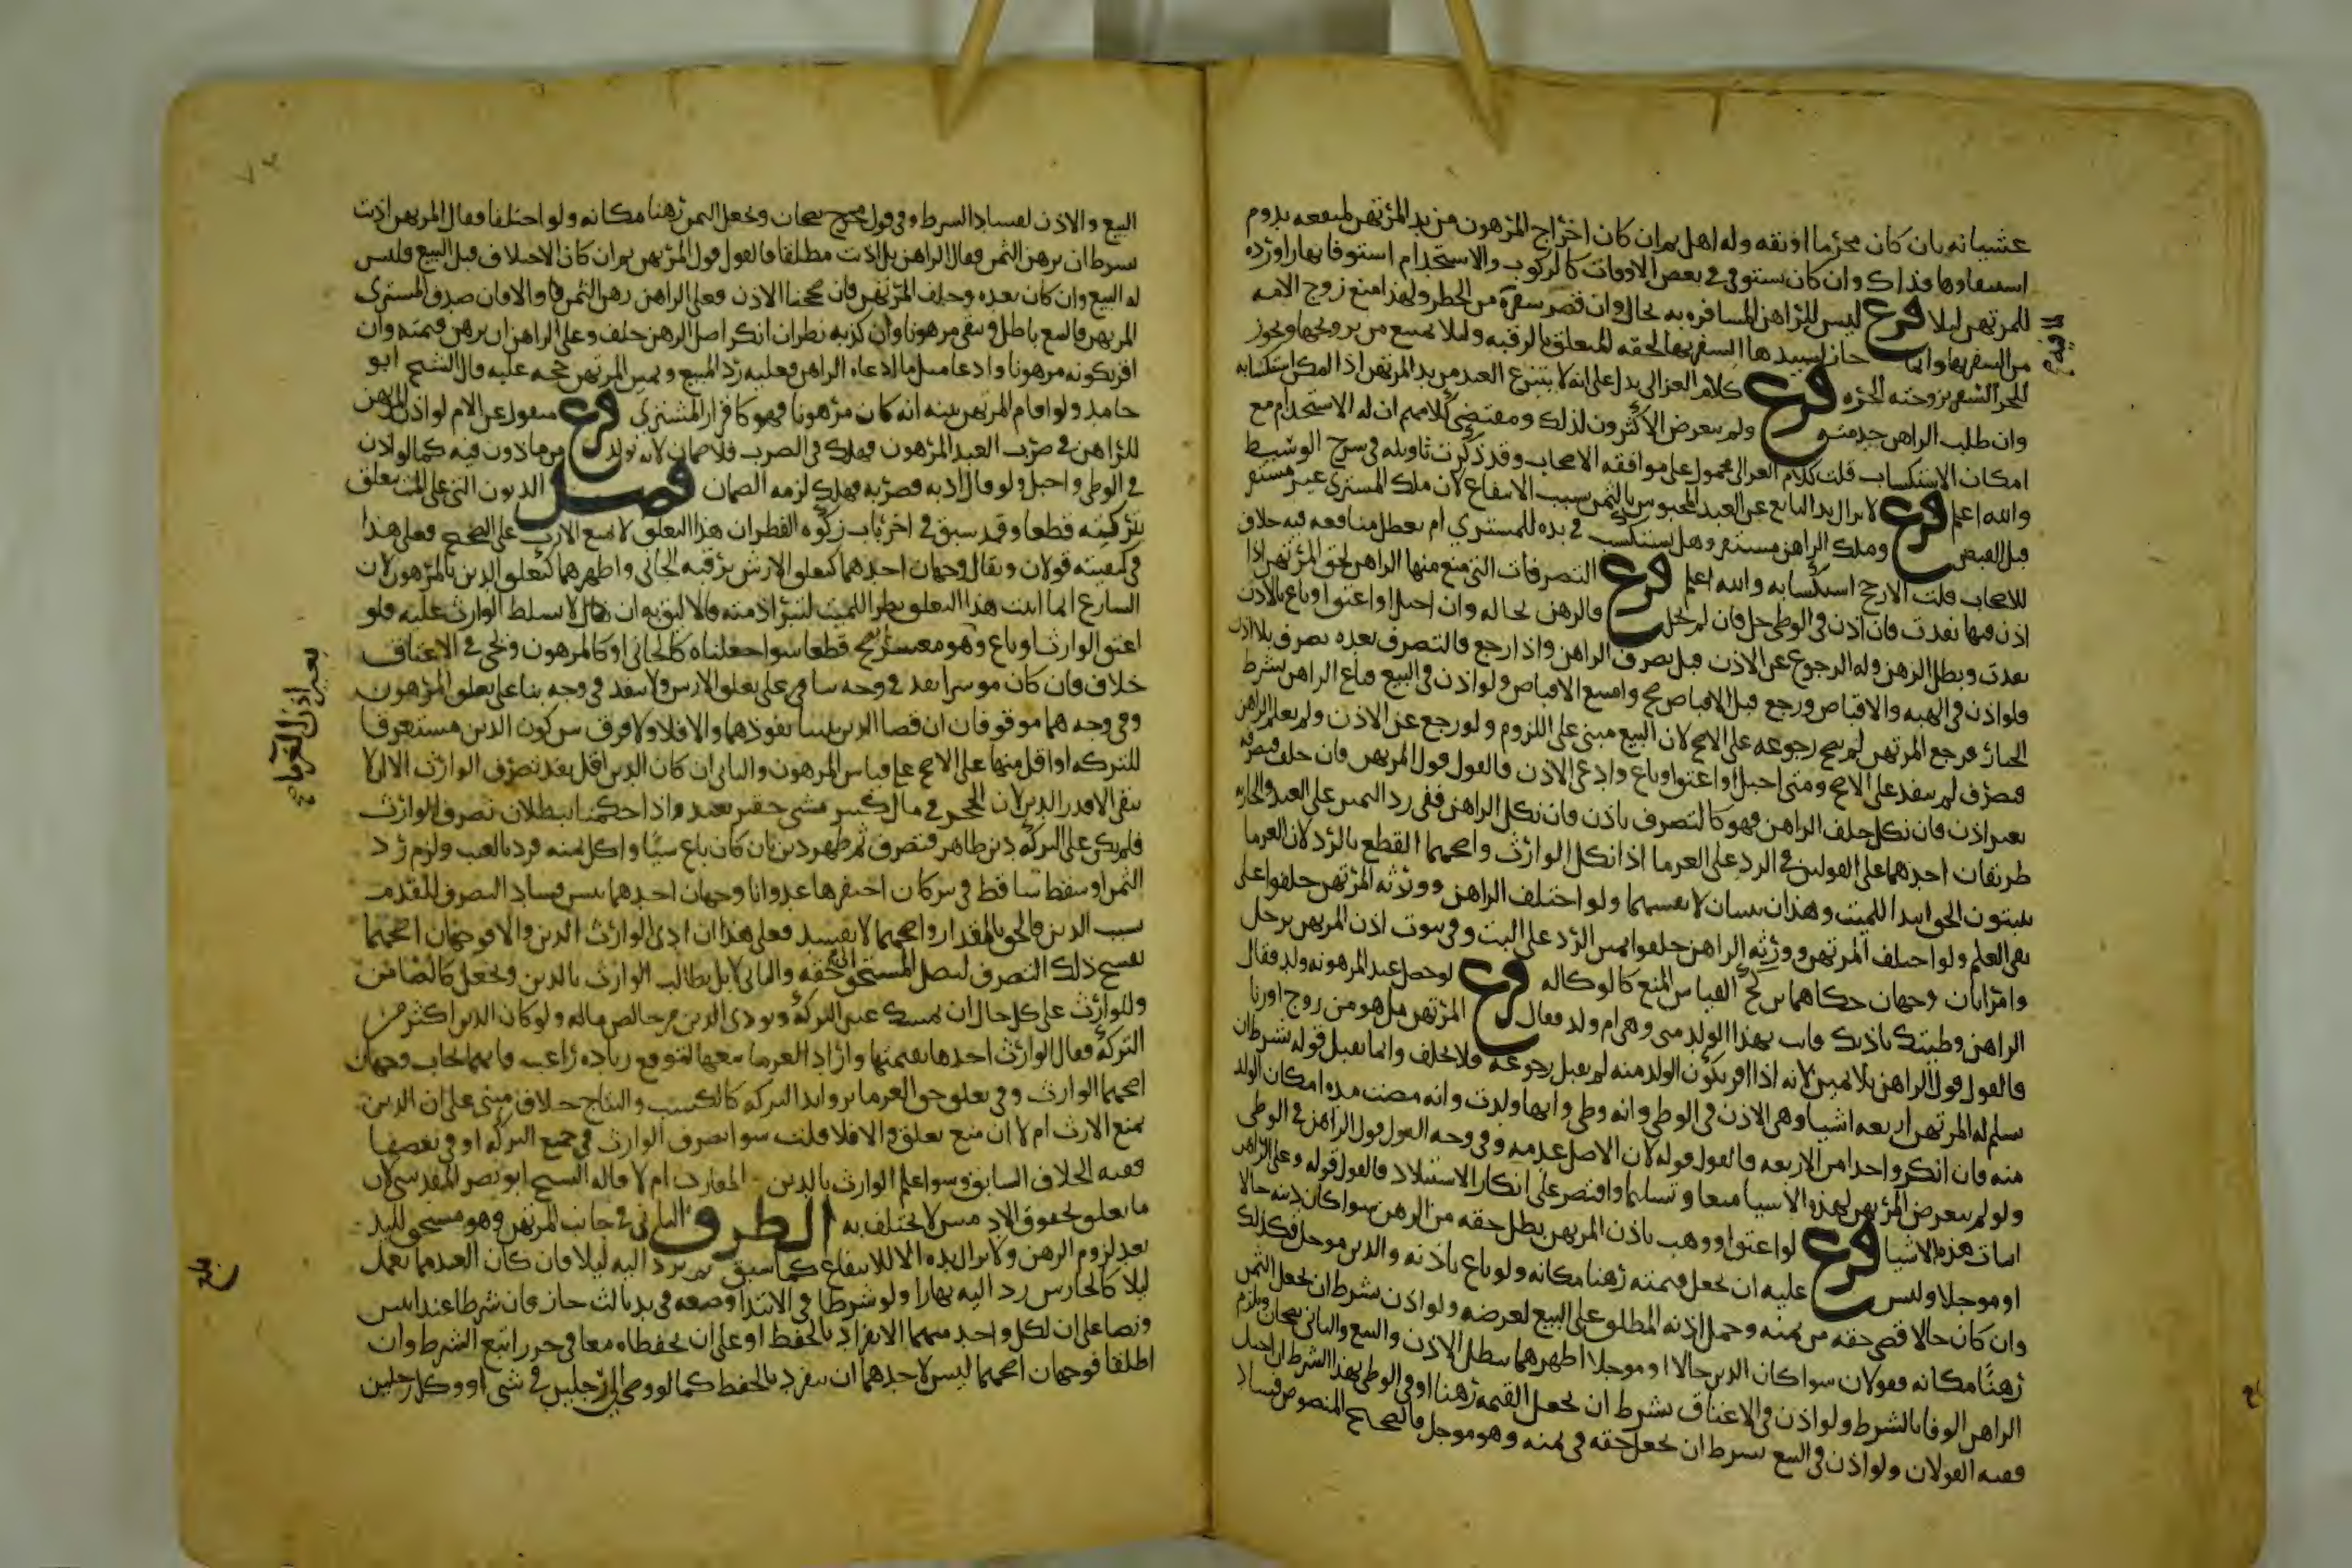 عشيانه بان كان محرما او ثقه وله اهل وان كان اخراج المرهون من يد المرتهن لمنفعه يدوم
استيفاوها فذاك وان كان يستوفي في بعض الاوقات كالركوب والاستخدام استوفا نهارا ورده
للمرتهن ليلا فرع ليس للراهن المسافره به بحال وان قصر سفره من الخطر ولهذا منع زوج الامه
من السفر بها وانما جاز لسيدها السفر بها لحقه المتعلق بالرقبه وليلا يمتنع من تزويجها ويجوز
للحر السفر بزوجته الحره فرع كلام الغزالي يدل على انه لا ينتزع العبد من يد المرتهن اذا امكن استكسابه
وان طلب الراهن خدمته ولم يتعرض الاكثرون لذلك ومقتضى كلامهم ان له الاستخدام مع
امكان الاستكساب قلت كلام الغزالي محمول على موافقه الاصحاب وقد ذكرت تاويله في شرح الوسيط
والله اعلم فرع لا تزال يد البايع عن العبد المحبوس بالثمن بسبب الانتفاع لان ملك المشتري غير مستقر
قبل القبض وملك الراهن مستقر وهل يستكسب في يده للمشتري ام تعطل منافعه فيه خلاف
للاصحاب قلت الارجح استكسابه والله اعلم فرع التصرفات التي منع منها الراهن لحق المرتهن اذا
اذن فيها نفذت فان اذن في الوطي حل فان لم تحبل فالرهن بحاله وان احبل او اعتق او باع بالاذن
نفذت وبطل الرهن وله الرجوع عن الاذن قبل تصرف الراهن واذا رجع فالتصرف بعده تصرف بلا اذن
فلو اذن في الهبه والاقباض ورجع قبل الاقباض صح وامتنع الاقباض ولو اذن في البيع فباع الراهن بشرط
الخيار فرجع المرتهن لم يصح رجوعه على الاصح لان البيع مبني على اللزوم ولو رجع عن الاذن ولم يعلم الراهن
فتصرف لم ينفذ على الاصح ومتى احبل او اعتق او باع وادعى الاذن فالقول قول المرتهن فان حلف فتصرفه
بغير اذن فان نكل حلف الراهن فهو كالتصرف باذن فان نكل الراهن ففي رد اليمين على العبد والجاريه
طريقان احدهما على القولين في الرد على الغرما اذا نكل الوارث واصحهما القطع بالرد لان الغرما
يثبتون الحق ابتدا للميت وهذان يثبتان لانفسهما ولو اختلف الراهن وورثه المرتهن حلفوا على
نفي العلم ولو اختلف المرتهن وورثه الراهن حلفوا يمين الرد على البت وفي ثبوت اذن المرتهن برجل
وامراتان وجهان حكاهما بن كج القياس المنع كالوكاله فرع لو حصل عند المرهونه ولد فقال
الراهن وطيتك باذنك فاتت بهذا الولد مني وهي ام ولد فقال المرتهن بل هو من زوج او زنا
فالقول قول الراهن بلا يمين لانه اذا اقر بكون الولد منه لم يقبل رجوعه فلا يحلف وانما يقبل قوله بشرط ان
يسلم له المرتهن اربعه اشيا وهي الاذن في الوطي وانه وطي وانها ولدت وانه مضت مده امكان الولد
منه فان انكر واحدا من الاربعه فالقول قوله لان الاصل عدمه وفي وجه القول قول الراهن في الوطي
ولو لم يتعرض المرتهن لهذه الاشيا منعا وتسليما واقتصر على انكار الاستيلاد فالقول قوله وعلى الراهن
اثبات هذه الاشيا فرع لو اعتق او وهب باذن المرتهن بطل حقه من الرهن سوا كان دينه حالا
او موجلا وليس عليه ان يجعل قيمته رهنا مكانه ولو باع باذنه والدين موجل فكذلك
وان كان حالا قضى حقه من ثمنه وحمل اذنه المطلق على البيع لغرضه ولو اذن بشرط ان يجعل الثمن
رهنا مكانه فقولان سوا كان الدين حالا او موجلا اظهرهما بطل الاذن والبيع والثاني يصحان ويلزم
الراهن الوفا بالشرط ولو اذن في الاعتاق بشرط ان يجعل القيمه رهنا او في الوطي بهذا الشرط ان احبل
ففيه القولان ولو اذن في البيع بشرط ان يجعل حقه في ثمنه وهو موجل فالصحيح المنصوص فساد
البيع والاذن لفساد الشرط وفي قول مخرج يصحان ويجعل الثمن رهنا مكانه ولو اختلفا فقال المرتهن اذنت
بشرط ان ترهن الثمن وقال الراهن بل اذنت مطلقا فالقول قول المرتهن ثم ان كان الاختلاف قبل البيع فليس
له البيع وان كان بعده وحلف المرتهن فان صححنا الاذن فعلى الراهن رهن الثمن والا فان صدق المشتري
المرتهن فالبيع باطل وبقي مرهونا وان كذبه نظر ان انكر اصل الرهن حلف وعلى الراهن ان يرهن قيمته وان
اقر بكونه مرهونا وادعا مثل ما ادعاه الراهن فعليه رد المبيع ويمين المرتهن حجه عليه قال الشيخ ابو
حامد ولو اقام المرتهن بينه انه كان مرهونا فهو كاقرار المشتري فرع منقول عن الام لو اذن المرتهن
للراهن في ضرب العبد المرهون فهلك في الضرب فلا ضمان لانه تولد من ماذون فيه كما لو اذن
في الوطي واحبل ولو قال ادبه فضربه فهلك لزمه الضمان فصل الديون التي على الميت تتعلق
بتركته قطعا وقد سبق في اخر باب زكوه الفطر ان هذا التعلق لا يمنع الارث على الصحيح فعلى هذا
في كيفيته قولان ويقال وجهان احدهما كتعلق الارش برقبه الجاني واظهرهما كتعلق الدين بالمرهون لان
الشارع انما اثبت هذا التعلق نظرا للميت لتبرا ذمته فالاليق به ان لا يسلط الوارث عليه فلو
اعتق الوارث او باع وهو معسر لم يصح قطعا سوا جعلناه كالجاني او كالمرهون ويجي في الاعتاق
خلاف فان كان موسرا نفذ في وجه بنا على تعلق الارش ولا ينفذ في وجه بنا على تعلق المرهون
وفي وجه هما موقوفان ان قضا الدين تبينا نفوذهما والا فلا ولا فرق بين كون الدين مستغرقا
للتركه او اقل منها على الاصح على قياس المرهون والثاني ان كان الدين اقل نفذ تصرف الوارث الا ان لا
يبقى الا قدر الدين لان الحجر في مال كثير بشي حقير بعيد واذا حكمنا ببطلان تصرف الوارث
فلم يكن على التركه دين ظاهر فتصرف ثم ظهر دين بان كان باع شيا واكل ثمنه فرد بالعيب ولزم رد
الثمن او سقط ساقط في بير كان احتفرها عدوانا وجهان احدهما يتبين فساد التصرف لتقدم
سبب الدين فالحق بالمقدار واصحهما لا يفسد فعلى هذا ان ادى الوارث الدين والا فوجهان اصحهما
يفسخ ذلك التصرف ليصل المستحق الى حقه والثاني لا بل يطالب الوارث بالدين ويجعل كالضامن
وللوارث على كل حال ان يمسك عين التركه ويودي الدين من خالص ماله ولو كان الدين اكثر من
التركه فقال الوارث اخذها بقيمتها واراد الغرما بيعها لتوقع زياده راغب فايهما يجاب وجهان
اصحهما الوارث وفي تعلق حق الغرما بزوايد التركه كالكسب والنتاج خلاف مبني على ان الدين
يمنع الارث ام لا ان منع تعلق والا فلا قلت سوا تصرف الوارث في جميع التركه او في بعضها
ففيه الخلاف السابق وسوا علم الوارث بالدين المقارن ام لا قاله الشيخ ابو نصر المقدسي لان
ما تعلق بحقوق الادميين لا يختلف به الطرف الثاني في جانب المرتهن وهو مستحق لليد
بعد لزوم الرهن ولا تزال يده الا للانتفاع كما سبق ثم يرد اليه ليلا فان كان العبد مما يعمل
ليلا كالحارس رد اليه نهارا ولو شرطا في الابتدا وضعه في يد ثالث جاز فان شرطا عند اثنين
ونصا على ان لكل واحد منهما الانفراد بالحفظ او على ان يحفظاه معا في حرز اتبع الشرط وان
اطلقا فوجهان اصحهما ليس لاحدهما ان ينفرد بالحفظ كما لو وصى الى رجلين في شي او وكل رجلين
بغير اذن الغرماء